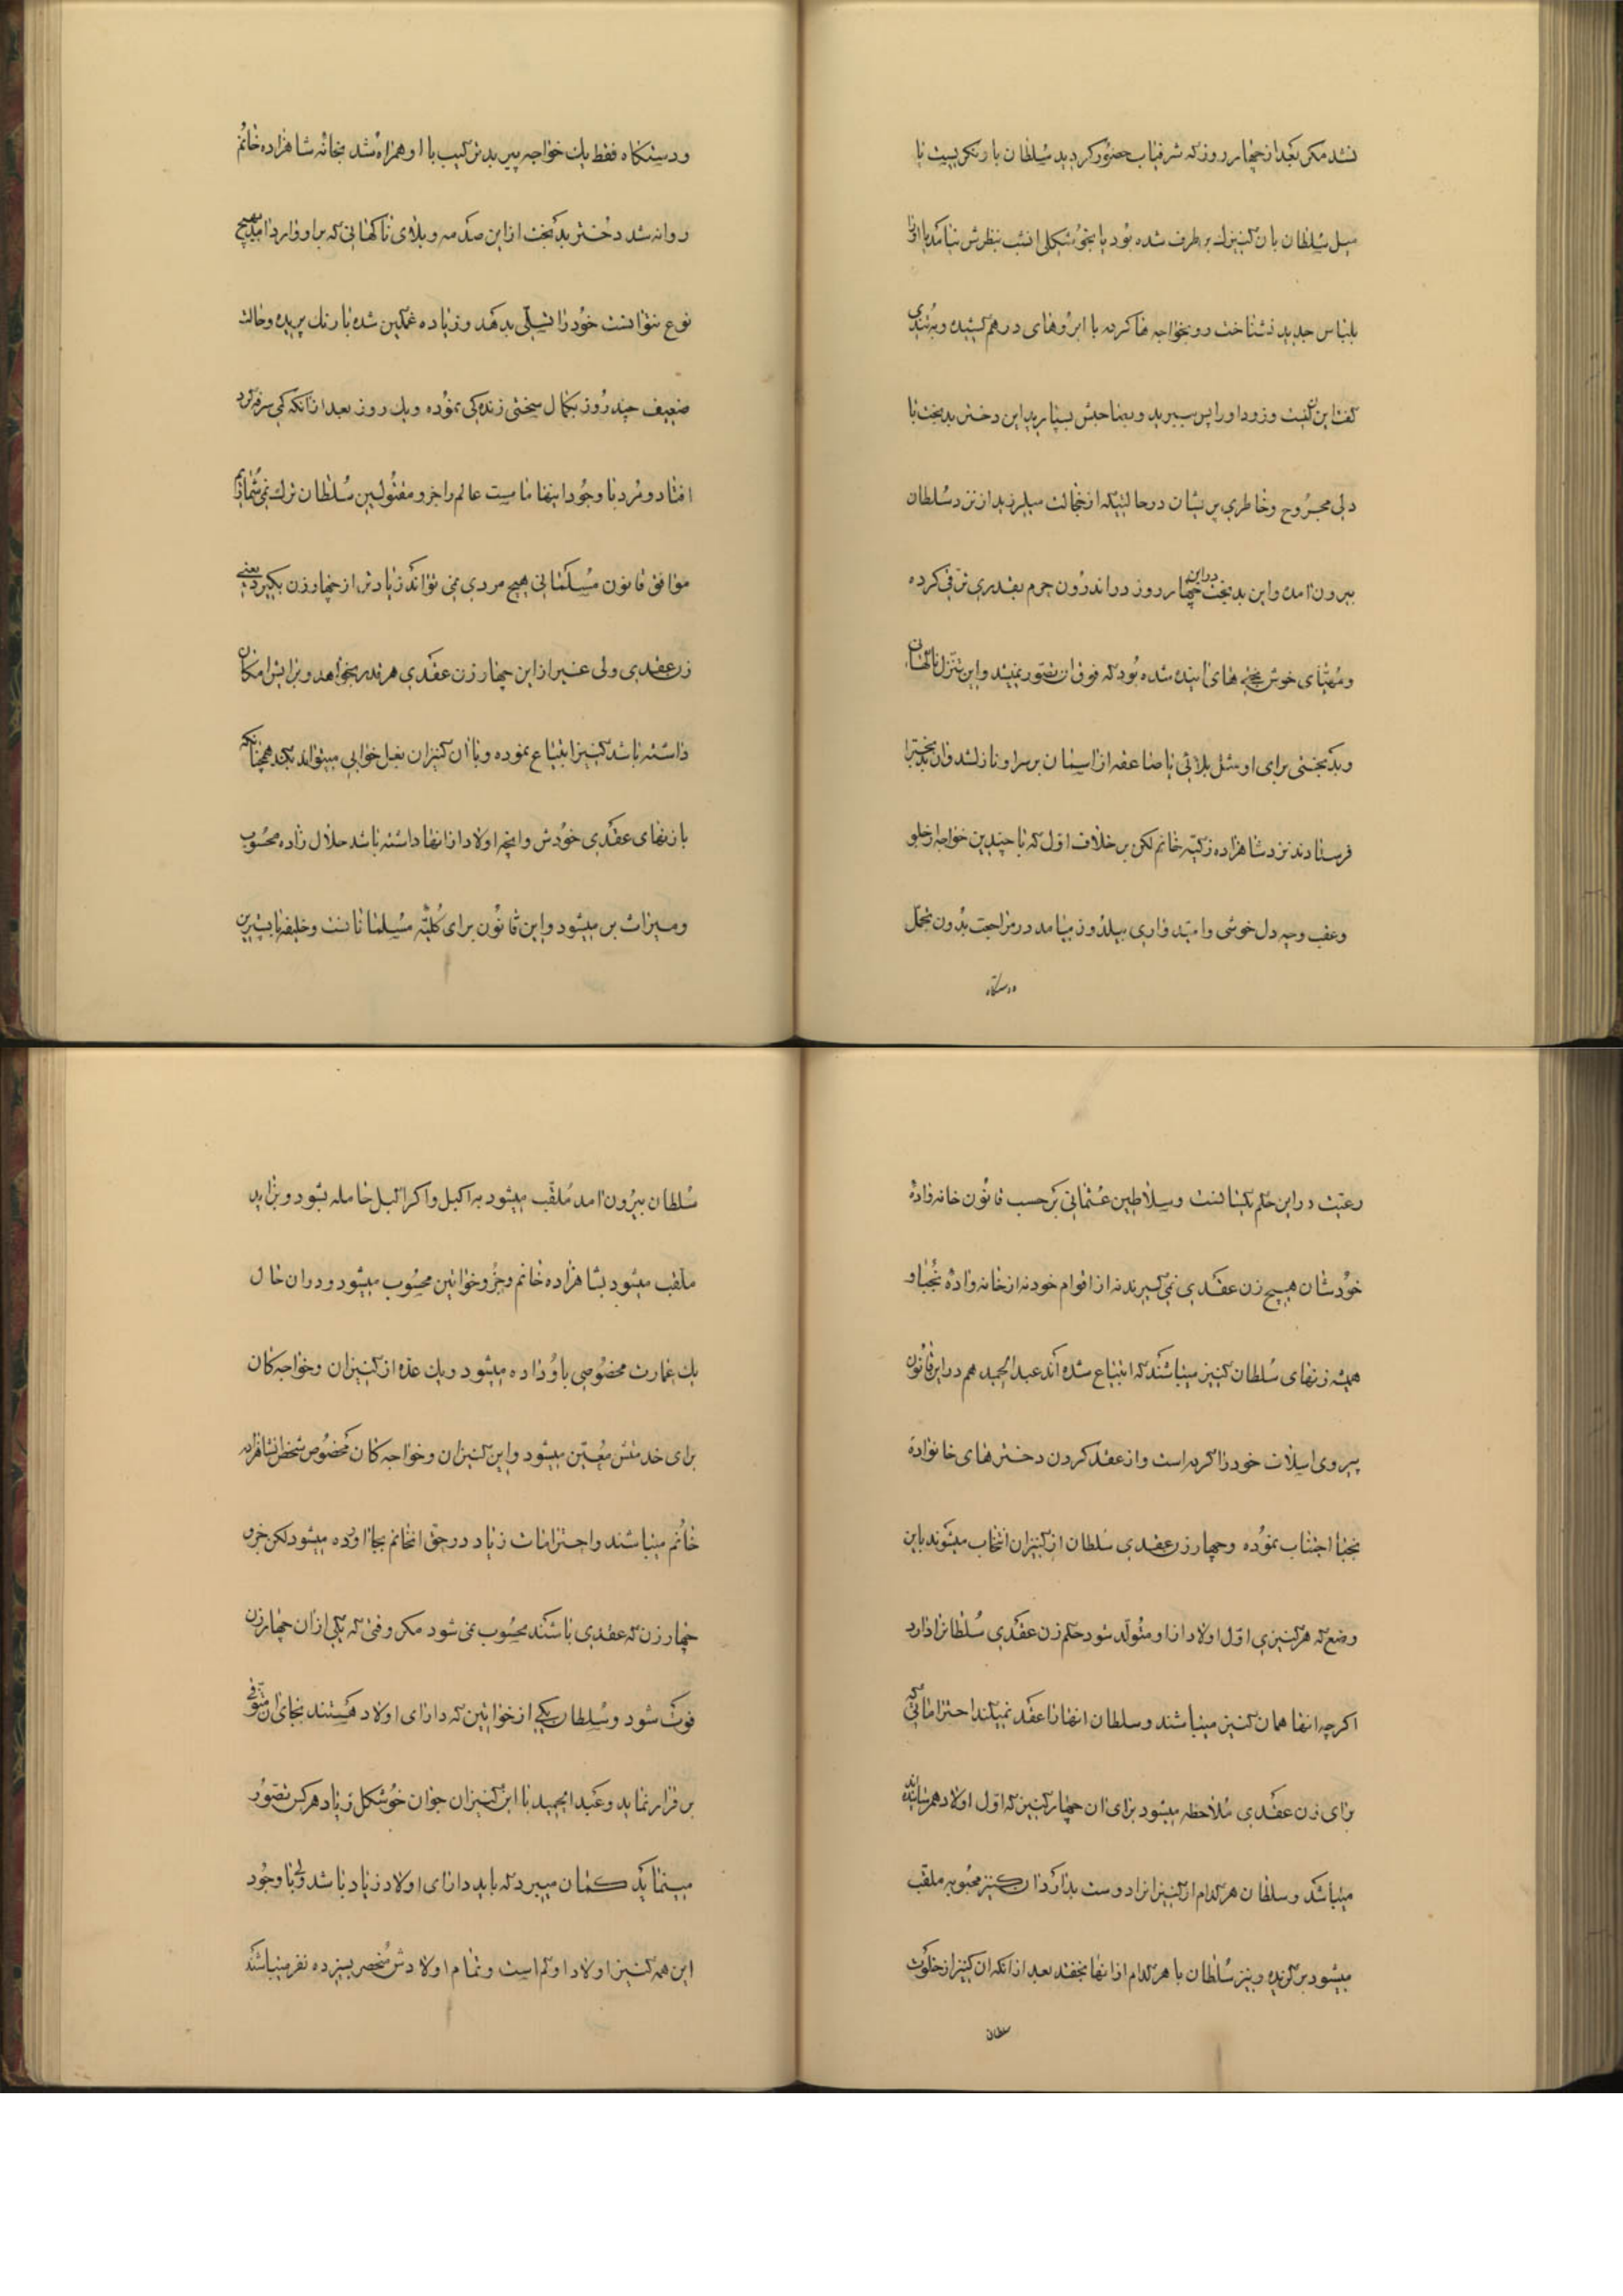 نشد مکر بعد از چهار روز که شرفیاب حضور کردید سلطان با و نکریست یا
میل سلطان بان کنیزک بر طرف شده بود یا بخوشکلی انشب بنظرش نیامد یا او را
بلباس جدید نشناخت رو بخواجه ها کرده با ابروهای درهم کشیده و به تندی
کفت این کیست و زود او را پس ببرید و بصاحبش بسپارید این دختر بدبخت با
دلی مجروح و خاطری پریشان در حالتیکه از خجالت میلرزید از نزد سلطان
بیرون امد و این بدبخت در این چهار روز در اندرون حرم بقدری ترقی کرده
و مهیای خوش بختی های اینده شده بود که فوق ان تصور نمیشد و این تنزل ناکهان
و بدبختی برای او مثل بلائی یا صاعقه از اسمان بر سر او نازل شد و ان بدبخترا
فرستادند نزد شاهزاده زکیه خانم لکن بر خلاف اول که با چندین خواجه از جلو
و عقب و چه دل خوشی و امیدواری بیلدوز میامد در مراجعت بدون تجمل
و دستکاه
و دستکاه فقط یک خواجه پیر بد ترکیب با او همراه شد بخانه شاهزاده خانم
روانه شد دختر بدبخت از این صدمه و بلای ناکهانی که بر او وارد امد بهیچ
نوع نتوانست خود را تسلی بدهد و زیاده غمکین شده با رنک پریده و حالت
ضعیف چند روز بکمال سختی زنده کی نموده و یک روز بعد از انکه کمی سرفه کرد
افتاد و مرد با وجود اینها تمامیت عالم را جزو مقتولین سلطان ترک نمی شماریم
موافق قانون مسلمانی هیچ مردی نمی تواند زیادتر از چهار زن بکیرد یعنی
زن عقدی ولی غیر از این چهار زن عقدی هر قدر بخواهد و برایش امکان
داشته باشد کنیز ابتیاع نموده و با ان کنیزان بغل خوابی میتواند بکند همچنانکه
با زنهای عقدی خودش و انچه اولاد از انها داشته باشد حلال زاده محسوب
و میراث بر میشود و این قانون برای کلیه مسلمانانست و خلیفه با پست‌ترین
رعیت در این حکم یکسانست و سلاطین عثمانی بر حسب قانون خانه وادهٔ
خودشان هیچ زن عقدی نمی کیرند نه از اقوام خود نه از خانه وادهٔ نجبا و
همیشه زنهای سلطان کنیز میباشند که ابتیاع شده اند عبدالحمید هم در این قانون
پیروی اسلاف خود را کرده است و از عقد کردن دخترهای خانوادهٔ
نجبا اجتناب نموده و چهار زن عقدی سلطان از کنیزان انتخاب میشوند باین
وضع که هر کنیزی اول اولاد از او متولد شود حکم زن عقدی سلطانرا دارد
اکر چه انها همان کنیز میباشند و سلطان انها را عقد نمیکند احتراماتی که
برای زن عقدی ملاحظه میشود برای ان چهار کنیز که اول اولاد بهم رسانیده اند
میباشد و سلطان هر کدام از کنیزانرا دوست بدارد ان کنیز محبوبه ملقب
میشود بر کزیده و نیز سلطان با هر کدام از انها بخفتد بعد از انکه ان کنیز از خلوت
سلطان
سلطان بیرون امد ملقب میشود به اکبل و اکر اکبل حامله بشود و بزاید
ملقب میشود بشاهزاده خانم و جزو خوانین محسوب میشود و در ان حال
یک عمارت مخصوصی باو داده میشود و یک عده از کنیزان و خواجه کان
برای خدمتش معین میشود و این کنیزان و خواجه کان مخصوص شخص شاهزاده
خانم میباشند و احترامات زیاد در حق انخانم بجا اورده میشود لکن جزو
چهار زن که عقدی باشند محسوب نمی شود مکر وقتی که یکی از ان چهار زن
فوت شود و سلطان یکی از خوانین که دارای اولاد هستند بجای ان متوفی
بر قرار نماید و عبدالحمید با این کنیزان جوان خوشکل زیاد هر کس تصور
مینماید کمان میبرد که باید دارای اولاد زیاد باشد ولی با وجود
این همه کنیز اولاد او کم است و تمام اولادش منحصر بسیزده نفر میباشند